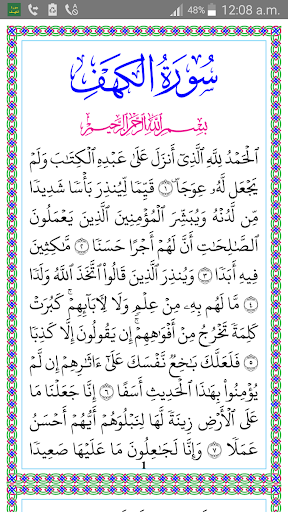 48% 12:08 a.m.
سُورَةُ الْكَهْفِ
بِسْمِ اللَّهِ الرَّحْمَٰنِ الرَّحِيمِ
الْحَمْدُ لِلَّهِ الَّذِي أَنْزَلَ عَلَىٰ عَبْدِهِ الْكِتَابَ وَلَمْ
يَجْعَلْ لَهُ عِوَجًا ۝١ قَيِّمًا لِيُنْذِرَ بَأْسًا شَدِيدًا
مِنْ لَدُنْهُ وَيُبَشِّرَ الْمُؤْمِنِينَ الَّذِينَ يَعْمَلُونَ
الصَّالِحَاتِ أَنَّ لَهُمْ أَجْرًا حَسَنًا ۝٢ مَاكِثِينَ
فِيهِ أَبَدًا ۝٣ وَيُنْذِرَ الَّذِينَ قَالُوا اتَّخَذَ اللَّهُ وَلَدًا
۝٤ مَا لَهُمْ بِهِ مِنْ عِلْمٍ وَلَا لِآبَائِهِمْ ۚ كَبُرَتْ
كَلِمَةً تَخْرُجُ مِنْ أَفْوَاهِهِمْ ۚ إِنْ يَقُولُونَ إِلَّا كَذِبًا
۝٥ فَلَعَلَّكَ بَاخِعٌ نَفْسَكَ عَلَىٰ آثَارِهِمْ إِنْ لَمْ
يُؤْمِنُوا بِهَٰذَا الْحَدِيثِ أَسَفًا ۝٦ إِنَّا جَعَلْنَا مَا
عَلَى الْأَرْضِ زِينَةً لَهَا لِنَبْلُوَهُمْ أَيُّهُمْ أَحْسَنُ
عَمَلًا ۝٧ وَإِنَّا لَجَاعِلُونَ مَا عَلَيْهَا صَعِيدًا
1